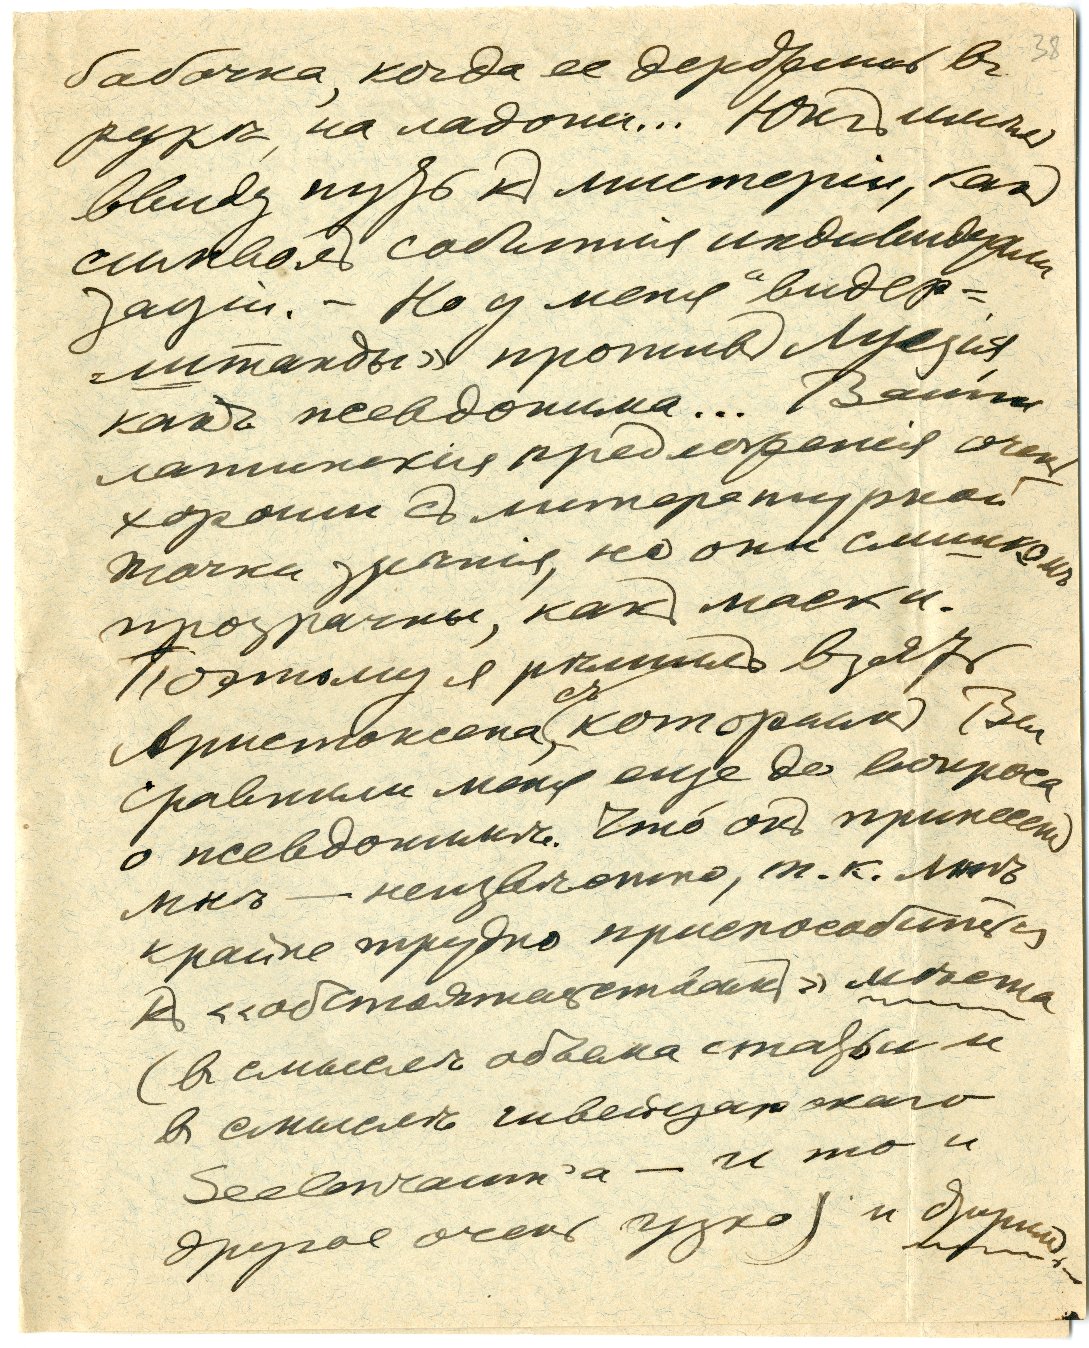 38
бабочка, когда ее держишь въ
рукѣ, на ладони... Юнгъ имѣлъ
ввиду путь къ мистеріи, какъ
символъ событія индивидуали
заціи. – Но у меня "видер-
-штанды» противъ Луція,
какъ псевдонима... Ваши
латинскія предложенія очень
хороши съ литературной
точки зрѣнія, но они слишкомъ
прозрачны, какъ маски.
Поэтому я рѣшилъ взять
Аристоксена, съ которымъ Вы
сравнили меня еще до вопроса
о псевдонимѣ. Что́ онъ принесетъ
мнѣ — неизвѣстно, т. к. мнѣ
крайне трудно приспособиться
къ «обстоятельствамъ» мѣста
(въ смыслѣ объема статьи и
въ смыслѣ швейцарскаго
Seelenraum'а — и то и
другое очень узко) и